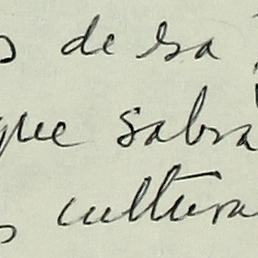 s de sa
que sabra
s cultura